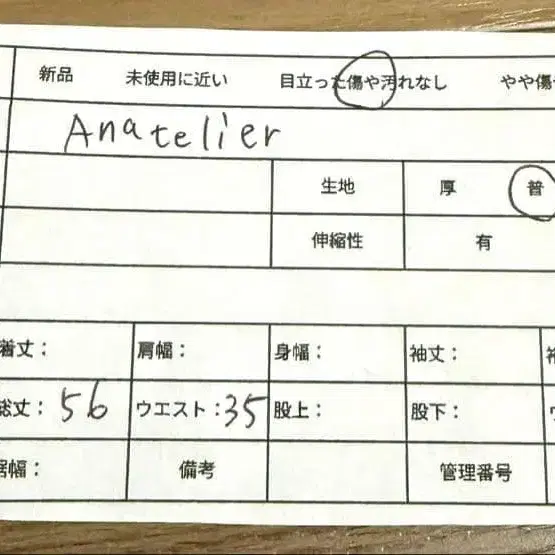 新品 未使用に近い 目立った傷や汚れなし やや傷
Anatelier
生地 厚 普
伸縮性 有
着丈: 肩幅: 身幅: 袖丈:
総丈: 56 ウエスト: 35 股上: 股下:
裾幅: 備考 管理番号